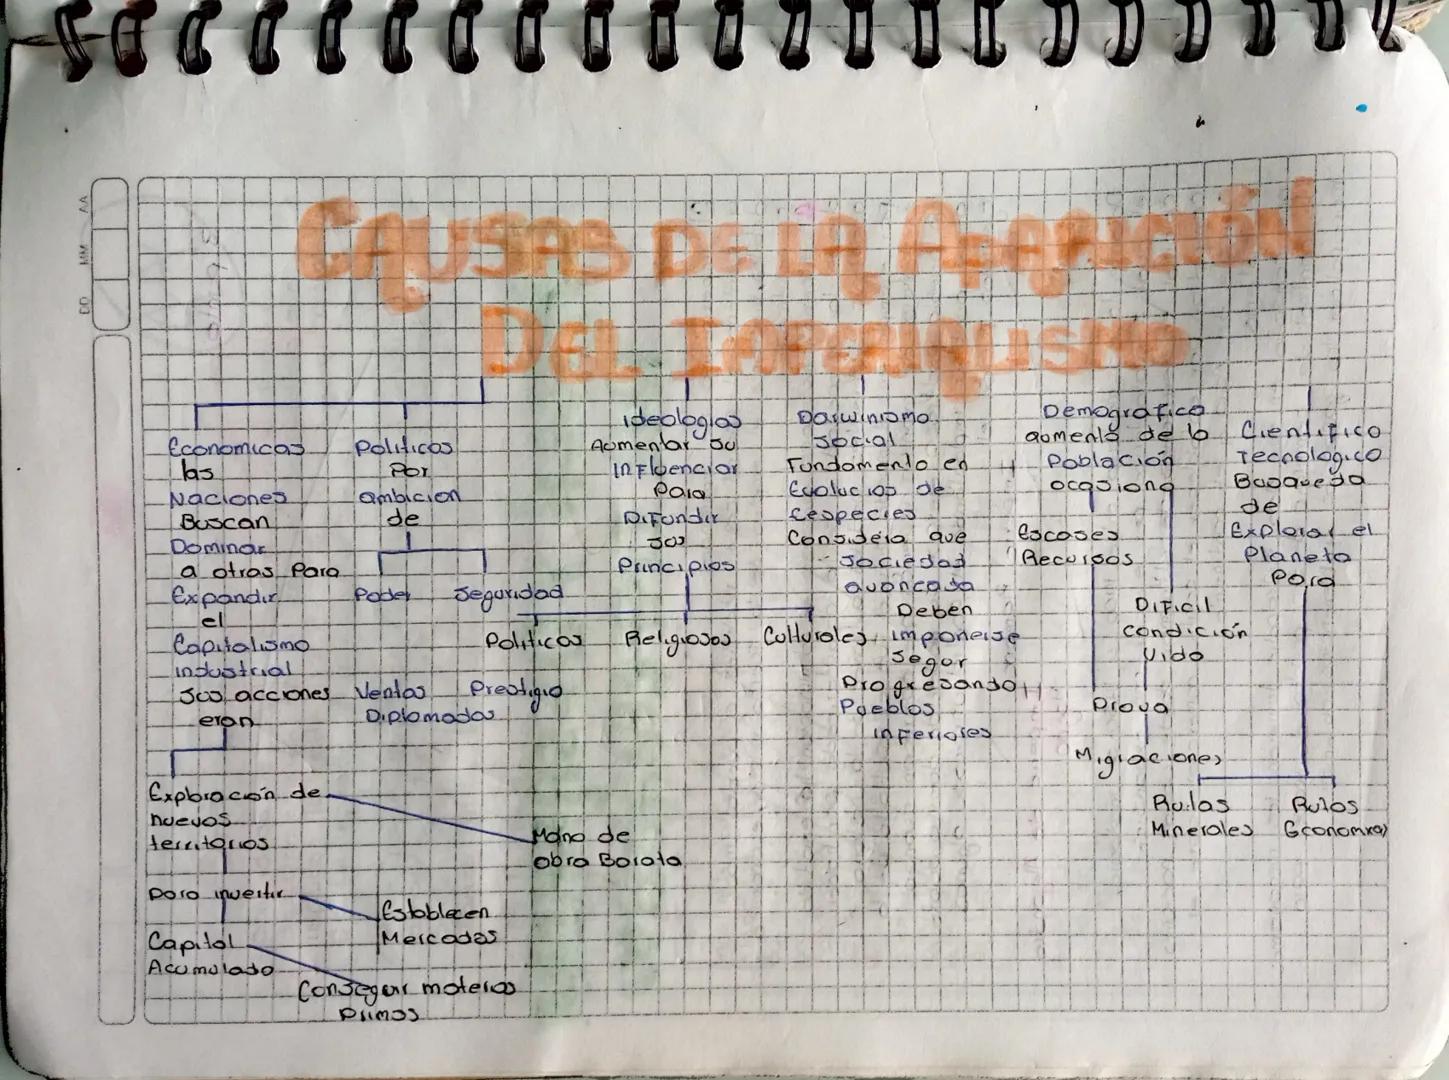 CAUSAS DE LA APARICIÓN
DEL IMPERIALISMO
Economicas
las
Naciones
Buscan
Dominar
a otras Para
Expandir
el
Capitalismo
industrial
sus acciones
eran
Exploración de
nuevos
territorios
Para invertir
Capital
Acumulado
Mano de
obra Barata
Establecen
Mercados
Conseguir materias
Primas
Politicas
Por
ambicion
de
Poder
Seguridad
Ventas
Diplomadas
Prestigio
ideologias
Aumentar su
Influenciar
Para
Difundir
sus
Principios
Politicos
Religiosos
Culturales
Darwinismo
Social
Fundamento en
Evolucion de
Cespecies
Considera que
Sociedad
avancada
Deben
imponerse
Segur
Progresando
Pueblos
inferiores
Demografico
aumento de la
Población
ocasiona
Escases
Recursos
Dificil
condición
vida
Prova
Migraciones
Cientifico
Tecnologico
Busqueda
de
Explorar el
Planeta
Para
Rutas
Minerales
Rutas
Economica)
DD MM AA